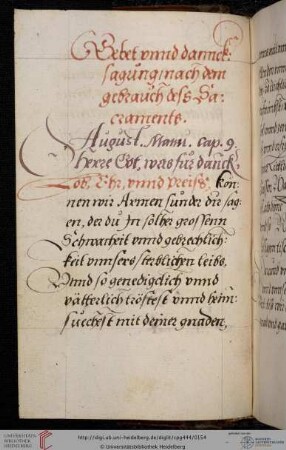 Gebet vnnd danck-
sagung nach dem
gebrauch dess Sa-
craments.
August. Manu. cap. 9.
Herre Got, was für danck,
Lob, Ehr, vnnd Preiss, kön-
nen wir Armen sunder dir sag-
en, der du In solher grossenn
Schwacheit vnnd gebrechlich-
keit vnnsers sterblichen leibs,
Vnnd so genedigclich vnnd
vätterlich tröstest vnnd heim-
suechest mit deiner gnaden,
UNIVERSITÄTS-
BIBLIOTHEK
HEIDELBERG
http://digi.ub.uni-heidelberg.de/diglit/cpg444/0154
© Universitätsbibliothek Heidelberg